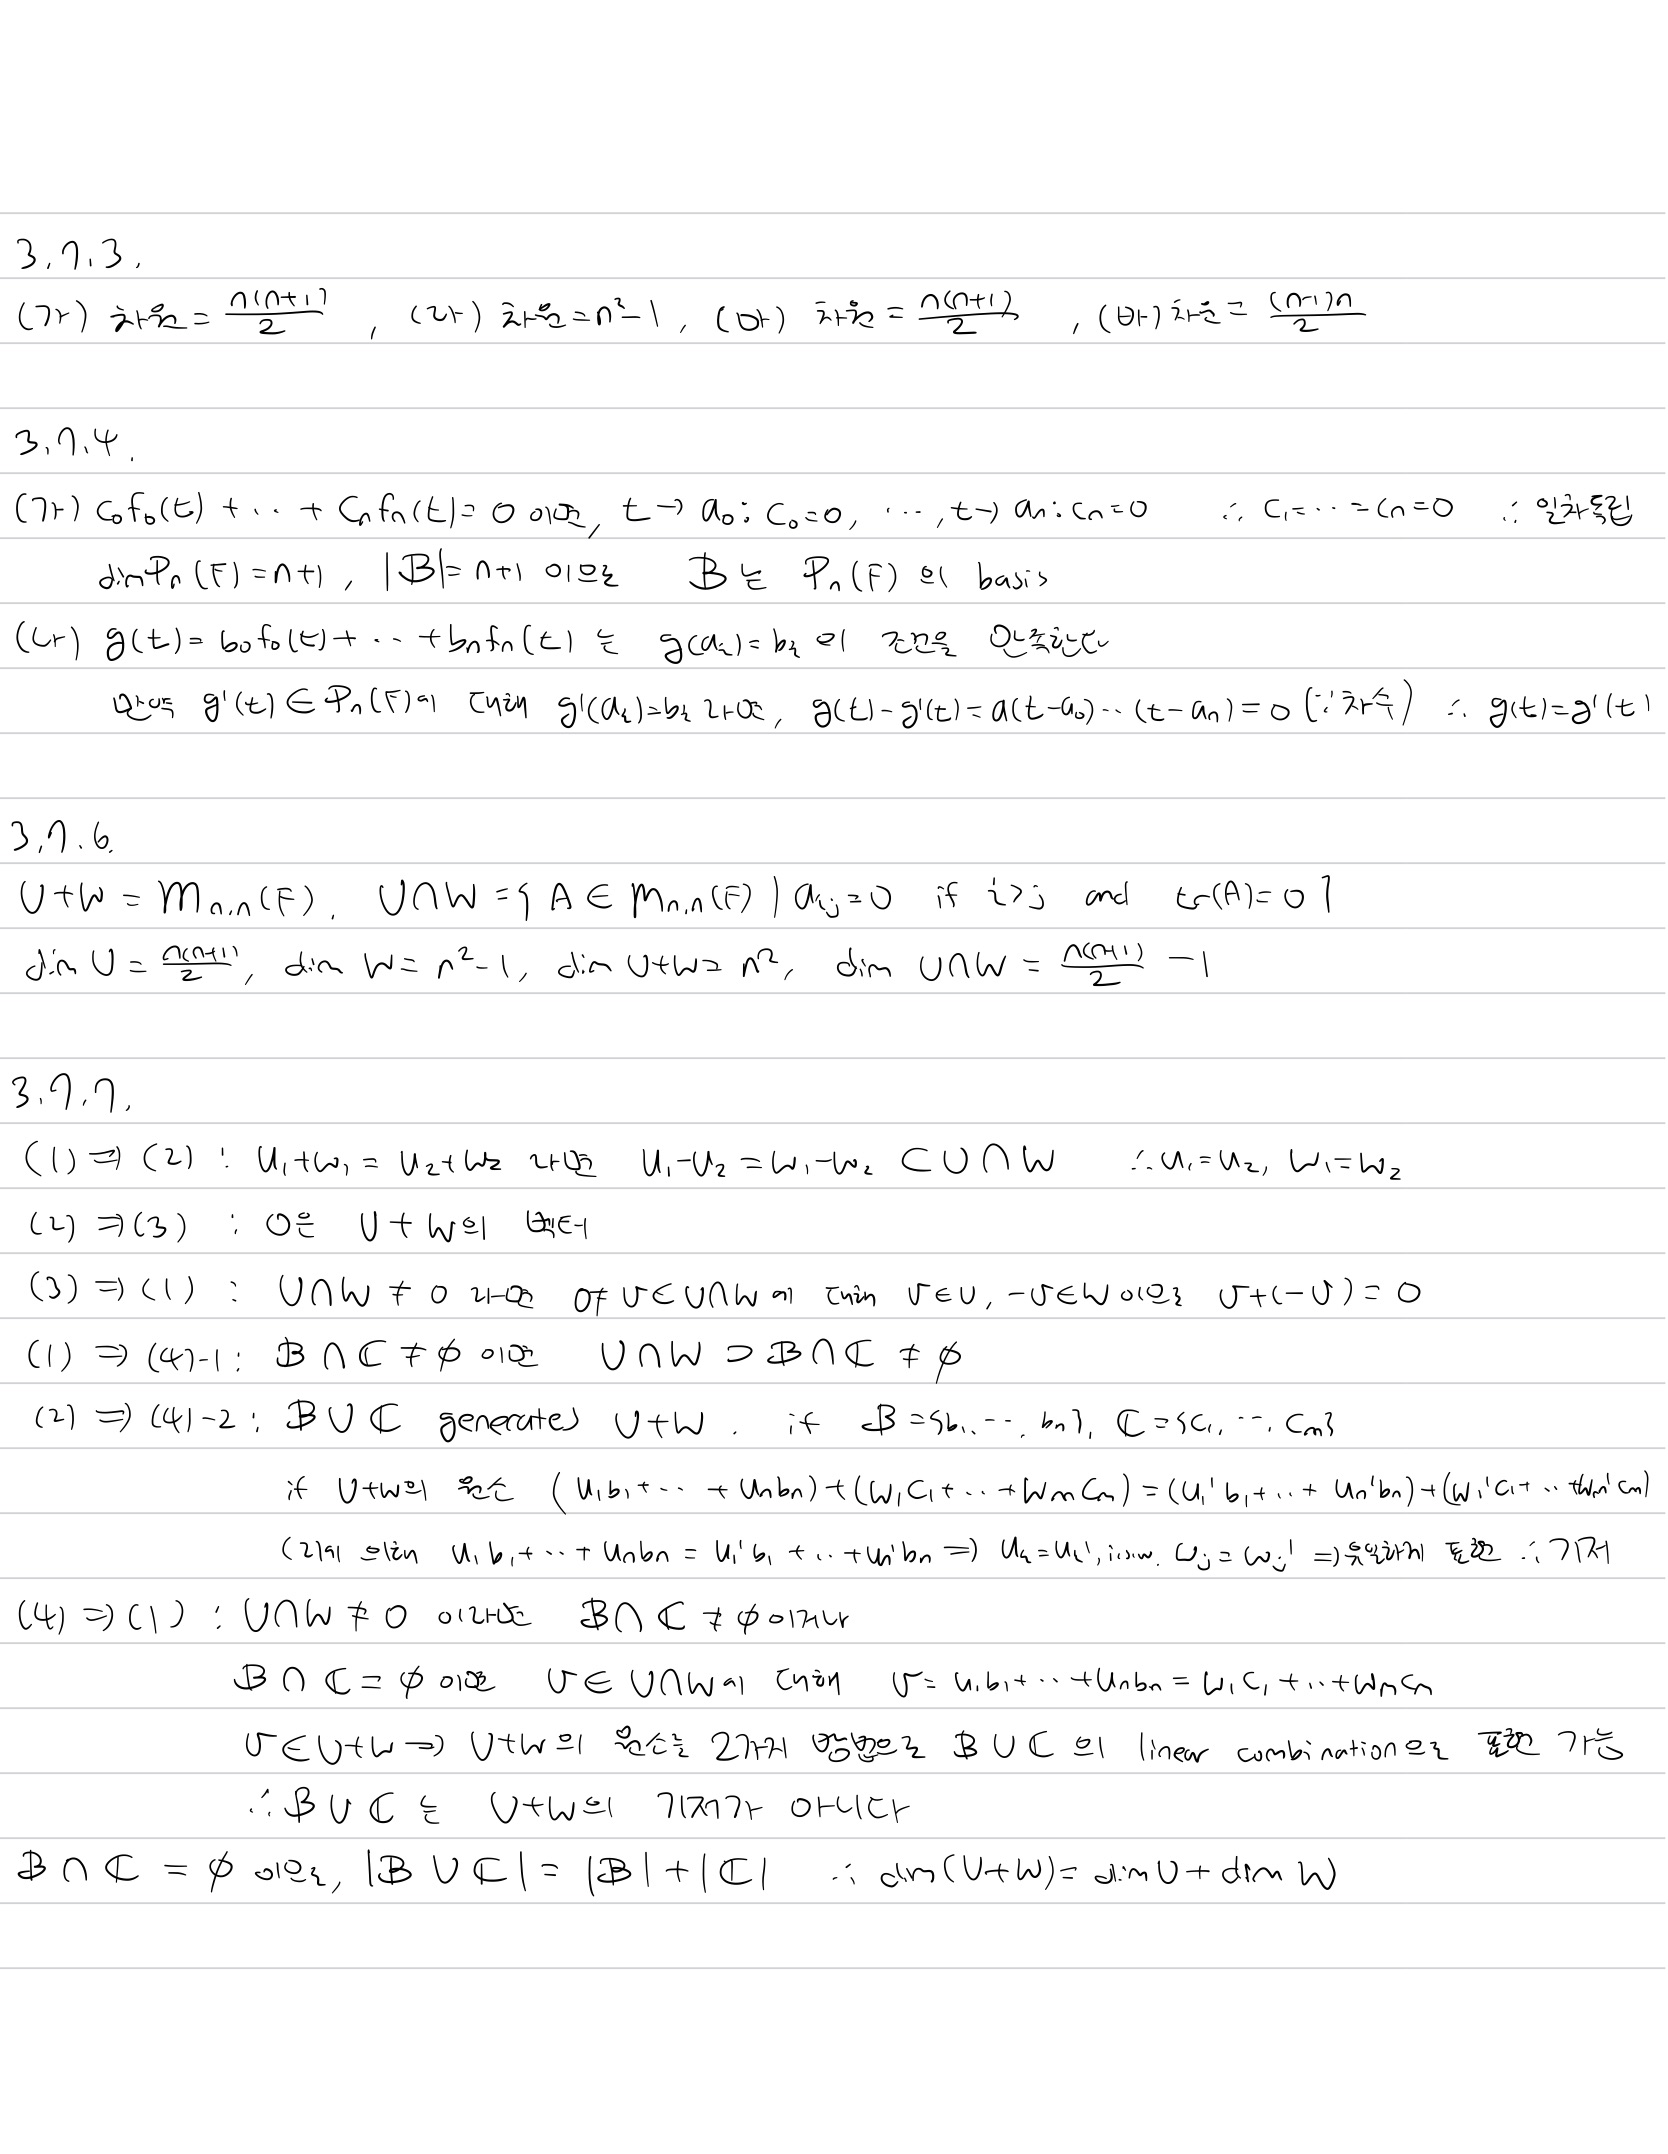 3.7.3.
(가) 차원 = n(n+1)/2 , (라) 차원 = n²-1, (마) 차원 = n(n+1)/2 , (바) 차원 = (n-1)n/2
3.7.4.
(가) c₀f₀(t) + ‥ + cₙfₙ(t) = 0 이면, t → a₀ : c₀=0, ⋯, t → aₙ : cₙ=0 ∴ c₁=‥=cₙ=0 ∴ 일차독립
dim Pₙ(F) = n+1, |𝔅| = n+1 이므로 𝔅는 Pₙ(F)의 basis
(나) g(t) = b₀f₀(t) + ‥ + bₙfₙ(t) 는 g(aᵢ) = bᵢ의 조건을 만족한다
만약 g'(t) ∈ Pₙ(F)에 대해 g'(aᵢ)=bᵢ 라면, g(t)-g'(t) = a(t-a₀)‥(t-aₙ) = 0 (∵ 차수) ∴ g(t)=g'(t)
3.7.6.
U+W = Mₙ,ₙ(F), U∩W = { A ∈ Mₙ,ₙ(F) | aᵢⱼ=0 if i>j and tr(A)=0 }
dim U = n(n+1)/2, dim W = n²-1, dim U+W = n², dim U∩W = n(n+1)/2 - 1
3.7.7.
(1) ⇒ (2) : u₁+w₁ = u₂+w₂ 라면 u₁-u₂ = w₁-w₂ ⊂ U∩W ∴ u₁=u₂, w₁=w₂
(2) ⇒ (3) : 0은 U+W의 벡터
(3) ⇒ (1) : U∩W ≠ 0 라면 0≠v∈U∩W에 대해 v∈U, -v∈W이므로 v+(-v) = 0
(1) ⇒ (4)-1 : 𝔅 ∩ ℂ ≠ ϕ 이면 U∩W ⊃ 𝔅∩ℂ ≠ ϕ
(2) ⇒ (4)-2 : 𝔅 ∪ ℂ generates U+W. if 𝔅 = {b₁, ‥, bₙ}, ℂ = {c₁, ‥, cₘ}
if U+W의 원소 (u₁b₁+‥+uₙbₙ)+(w₁c₁+‥+wₘcₘ) = (u₁'b₁+‥+uₙ'bₙ)+(w₁'c₁+‥+wₘ'cₘ)
(2)에 의해 u₁b₁+‥+uₙbₙ = u₁'b₁+‥+uₙ'bₙ ⇒ uᵢ=uᵢ', wⱼ=wⱼ' ⇒ 유일하게 표현 ∴ 기저
(4) ⇒ (1) : U∩W ≠ 0 이라면 𝔅∩ℂ ≠ ϕ이거나
𝔅 ∩ ℂ = ϕ 이면 v∈U∩W에 대해 v = u₁b₁+‥+uₙbₙ = w₁c₁+‥+wₘcₘ
v∈U+W ⇒ U+W의 원소를 2가지 방법으로 𝔅∪ℂ의 linear combination으로 표현 가능
∴ 𝔅∪ℂ는 U+W의 기저가 아니다
𝔅∩ℂ = ϕ 이므로, |𝔅∪ℂ| = |𝔅|+|ℂ| ∴ dim(U+W) = dim U + dim W